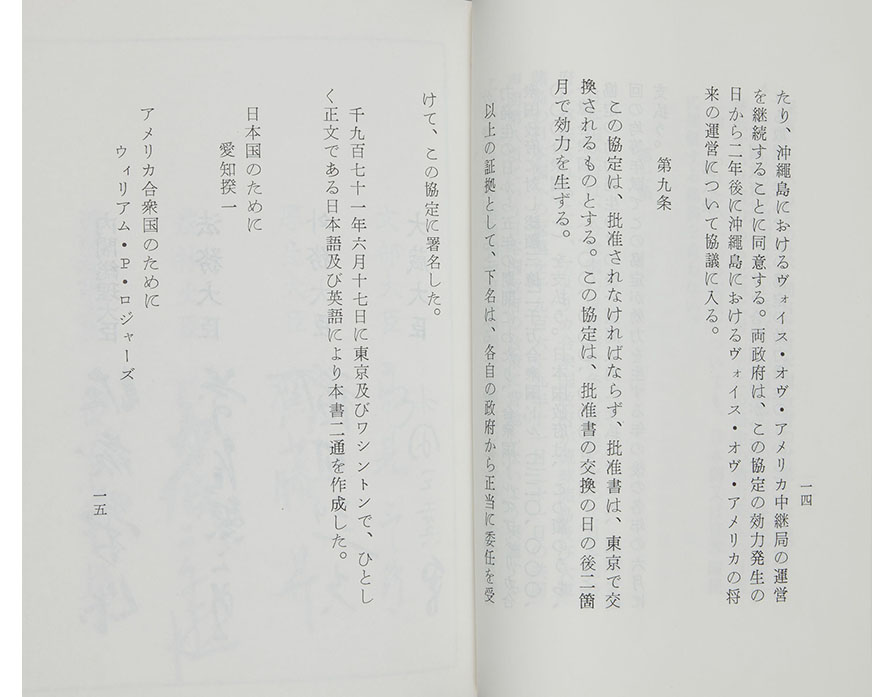 一四
たり、沖縄島におけるヴォイス・オヴ・アメリカ中継局の運営
を継続することに同意する。両政府は、この協定の効力発生の
日から二年後に沖縄島におけるヴォイス・オヴ・アメリカの将
来の運営について協議に入る。
第九条
この協定は、批准されなければならず、批准書は、東京で交
換されるものとする。この協定は、批准書の交換の日の後二箇
月で効力を生ずる。
以上の証拠として、下名は、各自の政府から正当に委任を受
けて、この協定に署名した。
千九百七十一年六月十七日に東京及びワシントンで、ひとし
く正文である日本語及び英語により本書二通を作成した。
日本国のために
愛知揆一
アメリカ合衆国のために
ウィリアム・P・ロジャーズ
一五